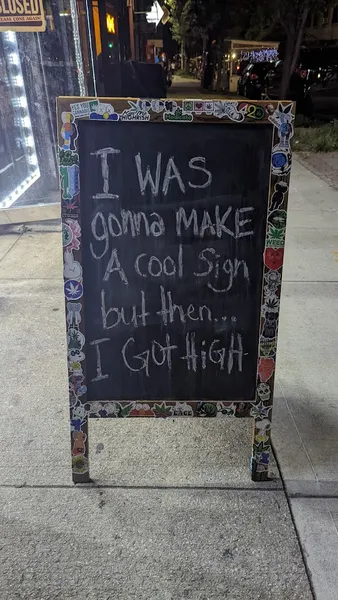 CLOSED
I WAS
gonna MAKE
A cool Sign
but then...
I GOT HIGH
WEED